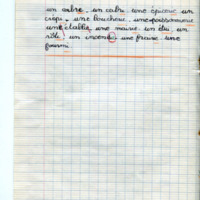 un arbre - un cabri - une épicerie - un
crapi - une boucherie - une poissonnerie
une étable - une mairie - un étui - un
rôti - un incendie - une fraise - une
fourmi